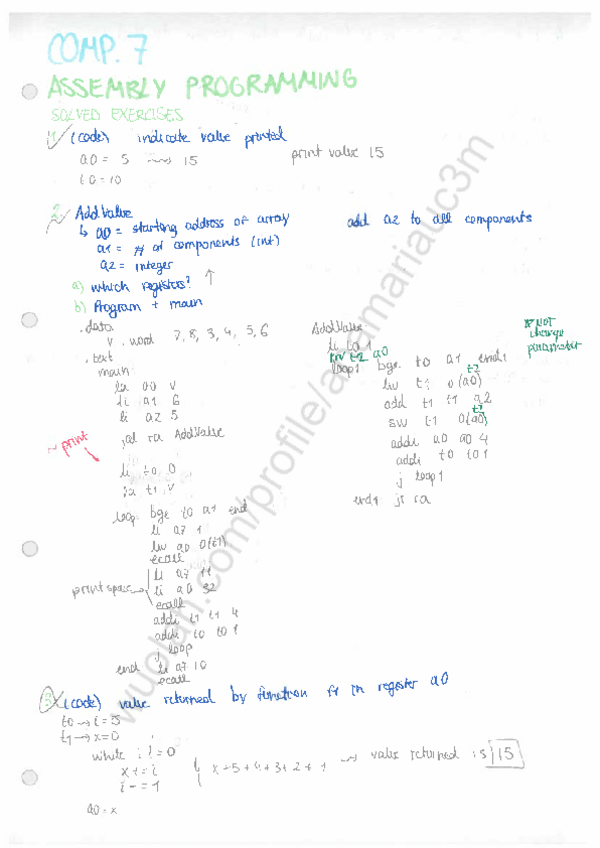 COMP. 7
ASSEMBLY PROGRAMMING
SOLVED EXERCISES
1 (code) indicate value printed
a0 = 5 → 15 print value 15
t0 = 10
2 Add Value
↳ a0 = starting address of array add a2 to all components
a1 = # of components (int)
a2 = integer
a) which registers? ↑
b) Program + main
.data
v .word 7, 8, 3, 4, 5, 6
.text
main
la a0 v
li a1 6
li a2 5
jal ra AddValue
~ print
li t0 0
la t1 v
loop bge t0 a1 end
li a7 1
lw a0 0(t1)
ecall
print space → li a7 11
li a0 32
ecall
addi t1 t1 4
addi t0 t0 1
j loop
end li a7 10
ecall
AddValue
li t0 1
mv t2 a0
loop1 bge t0 a1 end1
t2
lw t1 0(a0)
add t1 t1 a2
t2
sw t1 0(a0)
addi a0 a0 4
addi t0 t0 1
j loop1
end1 jr ra
* NOT
change
parameter
3 (code) value returned by function f1 in register a0
t0 → i = 5
t1 → x = 0
while i != 0
x += i
i -= 1
x + 5 + 4 + 3 + 2 + 1 → value returned is 15
a0 = x
wuolah.com/profile/anamariauc3m